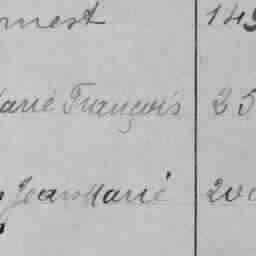 rnest 149
Marie François 25
Jean Marie 200